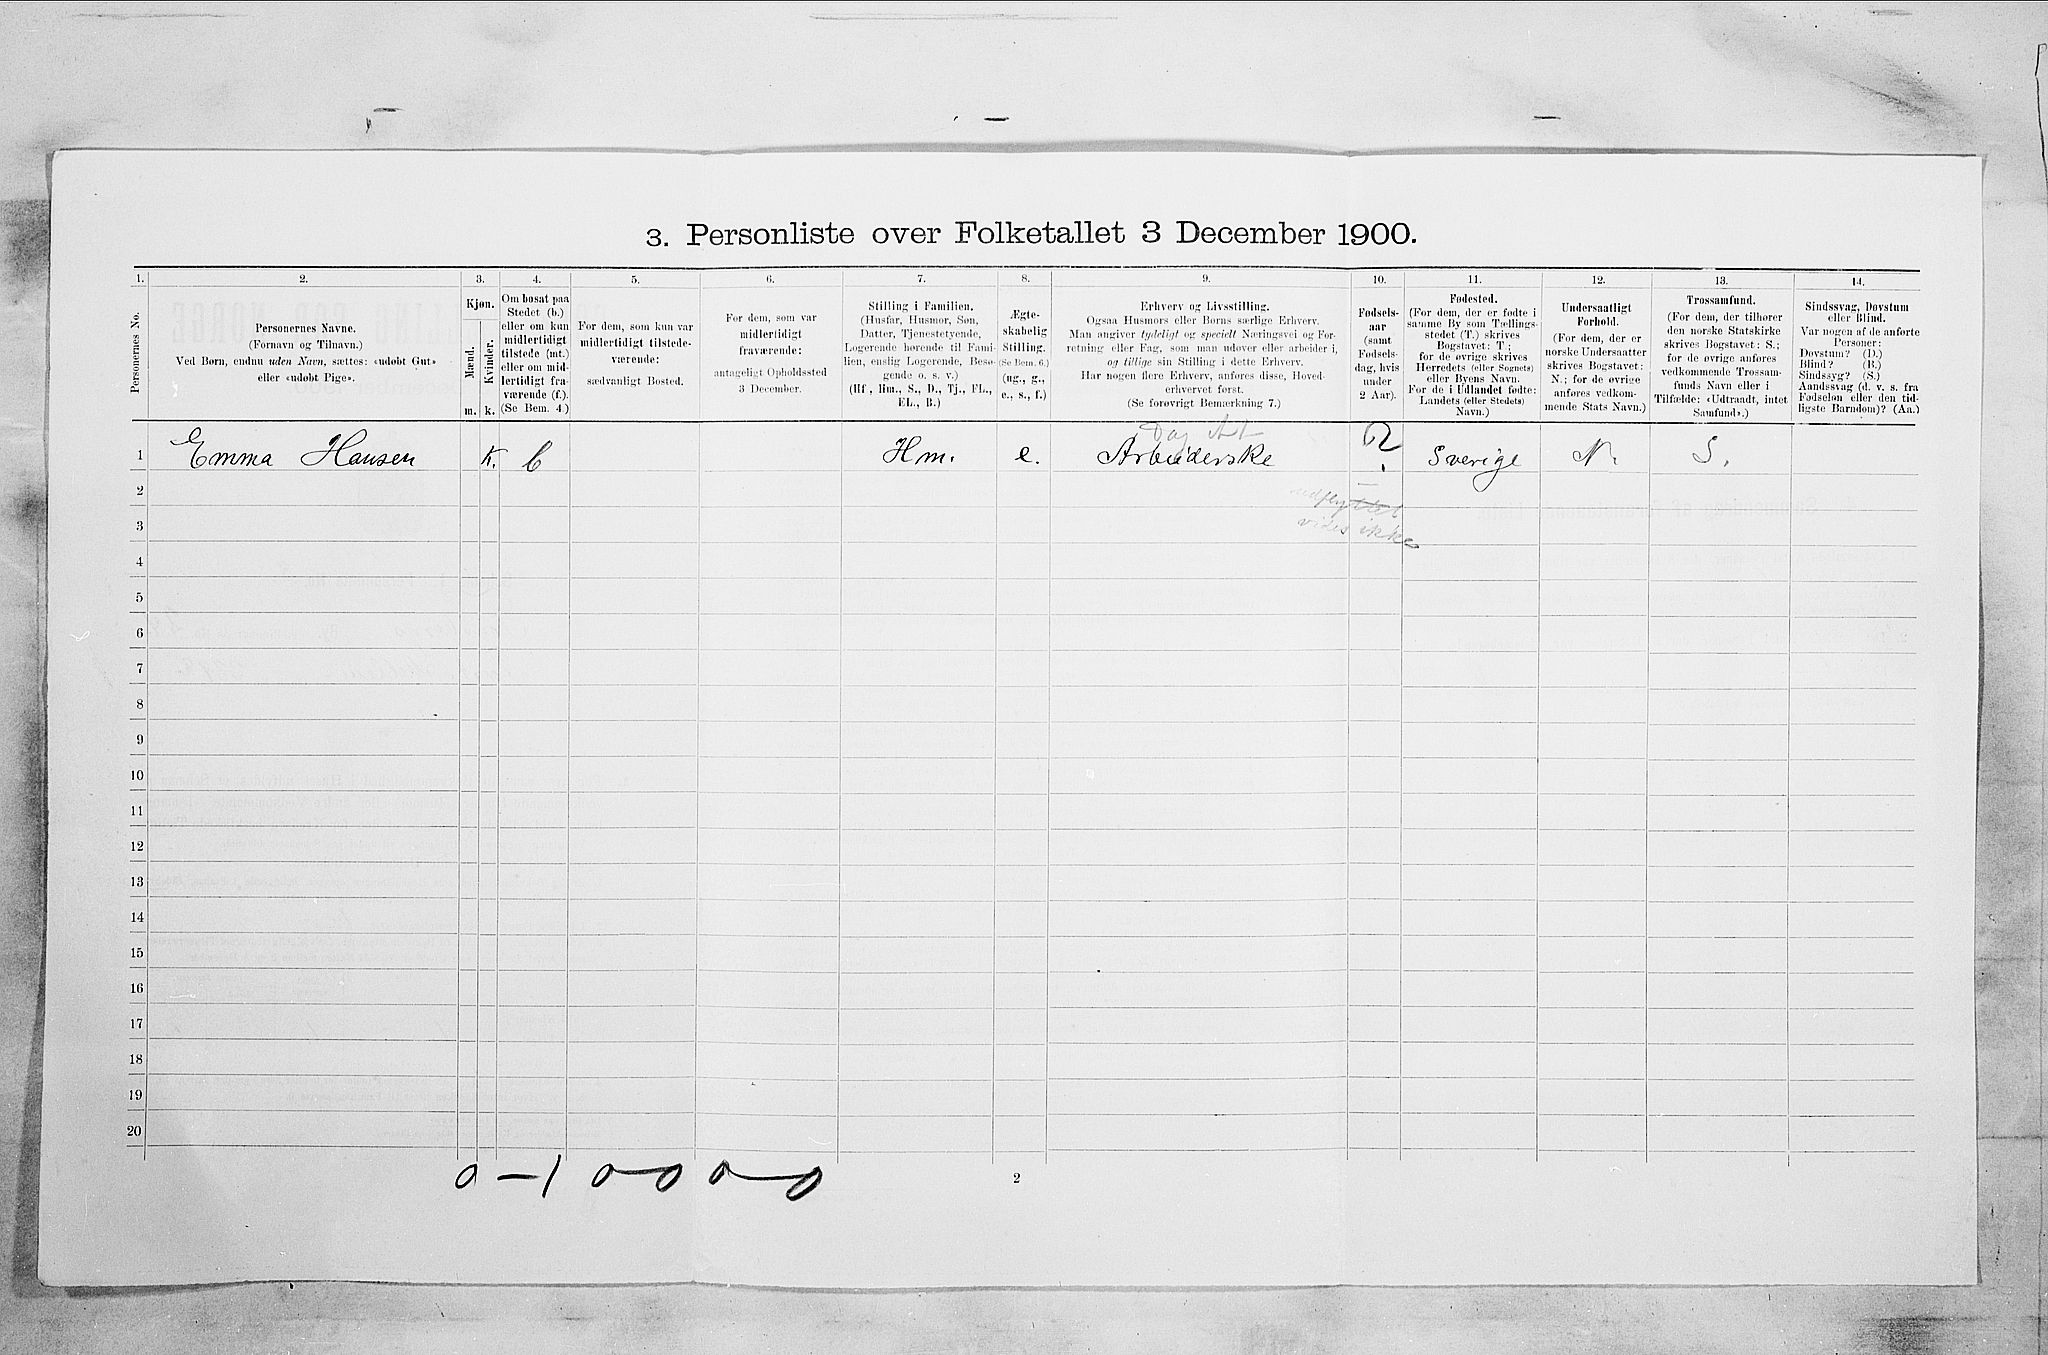 3. Personliste over Folketallet 3 December 1900.
1.
2.
Personernes Navne.
(Fornavn og Tilnavn.)
Ved Børn, endnu uden Navn, sættes: «udøbt Gut»
eller «udøbt Pige».
3.
Kjøn.
Mænd.
Kvinder.
m.
k.
4.
Om bosat paa
Stedet (b.)
eller om kun
midlertidigt
tilstede (mt.)
eller om mid-
lertidigt fra-
værende (f.).
(Se Bem. 4.)
5.
For dem, som kun var
midlertidigt tilstede-
værende:
sædvanligt Bosted.
6.
For dem, som var
midlertidigt
fraværende:
antageligt Opholdssted
3 December.
7.
Stilling i Familien.
(Husfar, Husmor, Søn,
Datter, Tjenestetyende,
Logerende hørende til Fami-
lien, enslig Logerende, Besø-
gende o. s. v.)
(Hf., Hm., S., D., Tj., FL.,
EL., B.)
8.
Ægte-
skabelig
Stilling.
(Se Bem. 6.)
(ug., g.,
e., s., f.)
9.
Erhverv og Livsstilling.
Ogsaa Husmors eller Børns særlige Erhverv.
Man angiver tydeligt og specielt Næringsvei og For-
retning eller Fag, som man udøver eller arbeider i,
og tillige sin Stilling i dette Erhverv.
Har nogen flere Erhverv, anføres disse, Hoved-
erhvervet først.
(Se forøvrigt Bemærkning 7.)
10.
Fødsels-
aar
(samt
Fødsels-
dag, hvis
under
2 Aar).
11.
Fødested.
(For dem, der er fødte i
samme By som Tællings-
stedet (T.) skrives
Bogstavet: T.;
for de øvrige skrives
Herredets (eller Sognets)
eller Byens Navn.
For de i Udlandet fødte:
Landets (eller Stedets)
Navn.)
12.
Undersaatligt
Forhold.
(For dem, der er
norske Undersaatter
skrives Bogstavet:
N.; for de øvrige
anføres vedkom-
mende Stats Navn.)
13.
Trossamfund.
(For dem, der tilhører
den norske Statskirke
skrives Bogstavet: S.;
for de øvrige anføres
vedkommende Trossam-
funds Navn eller i
Tilfælde: «Udtraadt, intet
Samfund».)
14.
Sindssvag, Døvstum
eller Blind.
Var nogen af de anførte
Personer:
Døvstum? (D.)
Blind? (B.)
Sindssyg? (S.)
Aandssvag (d. v. s. fra
Fødselen eller den tid-
ligste Barndom)? (Aa.)
Personernes No.
1 Emma Hansen K. b Hm. e. Arbeiderske ? Sverige N. S.
2 udflyttet
3 vides ikke
4
5
6
7
8
9
10
11
12
13
14
15
16
17
18
19
20
0-1 0 0 0 0
2